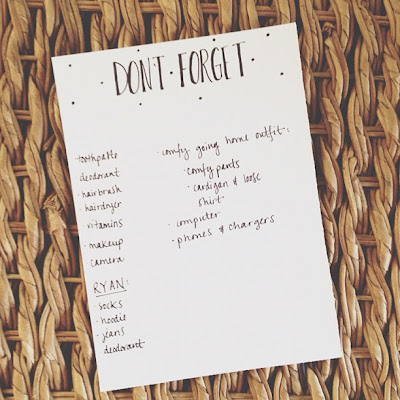 DON'T · FORGET
toothpaste
deodorant
· hairbrush
· hairdryer
vitamins
· makeup
camera
RYAN:
· socks
· hoodie
· jeans
deodorant
· comfy going home outfit:
· comfy pants
· cardigan & loose
shirt
· computer
· phones & chargers